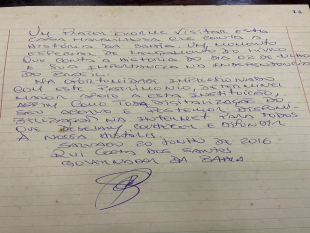 UM PRAZER ENORME VISITAR ESTA
CASA MARAVILHOSA QUE CONTA A
HISTÓRIA DA BAHIA. UM MOMENTO
ESPECIAL DE LANÇAMENTO DO LIVRO
QUE CONTA A HISTÓRIA DO DIA 02 DE JULHO
E SUA IMPORTÂNCIA NA INDEPENDÊNCIA
DO BRASIL.
NA OPORTUNIDADE IMPRESSIONADO
COM ESTE PATRIMÔNIO, DETERMINEI
MAIOR APOIO A ESTA INSTITUIÇÃO,
ASSIM COMO TODA DIGITALIZAÇÃO DO
SEU ACERVO E POSTERIOR DISPONI-
BILIZAÇÃO NA INTERNET PARA TODOS
QUE DESEJAM CONHECER E DIFUNDIR
A NOSSA HISTÓRIA.
SALVADOR 20 JUNHO DE 2016
RUI COSTA DOS SANTOS
GOVERNADOR DA BAHIA